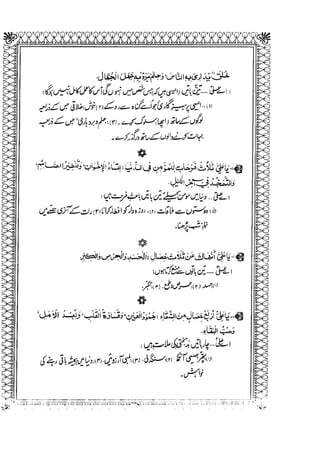 خُلُقٌ يُدَارِي بِهِ النَّاسَ وَحِلْمٌ يَرُدُّ بِهِ جَهْلَ الْجُهَّالِ.
اے علیؑ ... تین باتیں ایسی ہیں کہ جس شخص میں نہ ہوں گی اُس کا عمل مکمل نہیں ہوگا:
(۱) ... ایسی پرہیزگاری جو اُسے گناہ سے روکے (۲) خوش اخلاقی جس کے ذریعہ
لوگوں کے ساتھ اچھا سلوک کرے۔ (۳) علم و بردباری جس کے ذریعہ
جہالت کرنے والوں کے ساتھ درگذر کرے۔
يَا عَلِيُّ ثَلَاثُ فَرَحَاتٍ لِلْمُؤْمِنِ فِي الدُّنْيَا: لِقَاءُ الْإِخْوَانِ، وَتَفْطِيرُ الصَّائِمِ
وَالتَّهَجُّدُ فِي آخِرِ اللَّيْلِ.
اے علیؑ ... دنیا میں مومن کیلئے تین باتیں باعثِ فرحت ہیں:
(۱) دوستوں سے ملاقات (۲) روزہ دار کو افطار کرانا (۳) رات کے آخری حصے میں
نمازِ شب پڑھنا۔
يَا عَلِيُّ أَنْهَاكَ عَنْ ثَلَاثِ خِصَالٍ: الْحَسَدِ وَالْحِرْصِ وَالْكِبْرِ.
اے علیؑ ... تین باتوں سے منع کرتا ہوں:
(۱) حسد (۲) حرص و طمع (۳) تکبّر۔
يَا عَلِيُّ أَرْبَعُ خِصَالٍ مِنَ الشَّقَاءِ: جُمُودُ الْعَيْنِ، وَقَسَاوَةُ الْقَلْبِ، وَبُعْدُ الْأَمَلِ،
وَحُبُّ الْبَقَاءِ.
اے علیؑ ... چار باتیں بدبختی کی علامت ہیں:
(۱) پتھر جیسی آنکھ (۲) سنگدلی (۳) لمبی آرزوئیں (۴) دنیا میں ہمیشہ باقی رہنے کی
خواہش۔